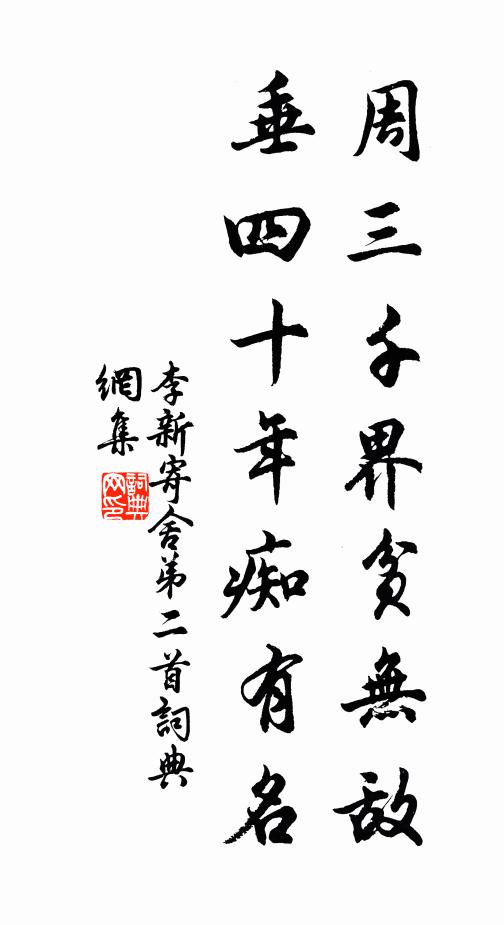 周三千界貧無敵
垂四十年痴有名
李新寄舍弟二首詞典
網集
詞典
网印